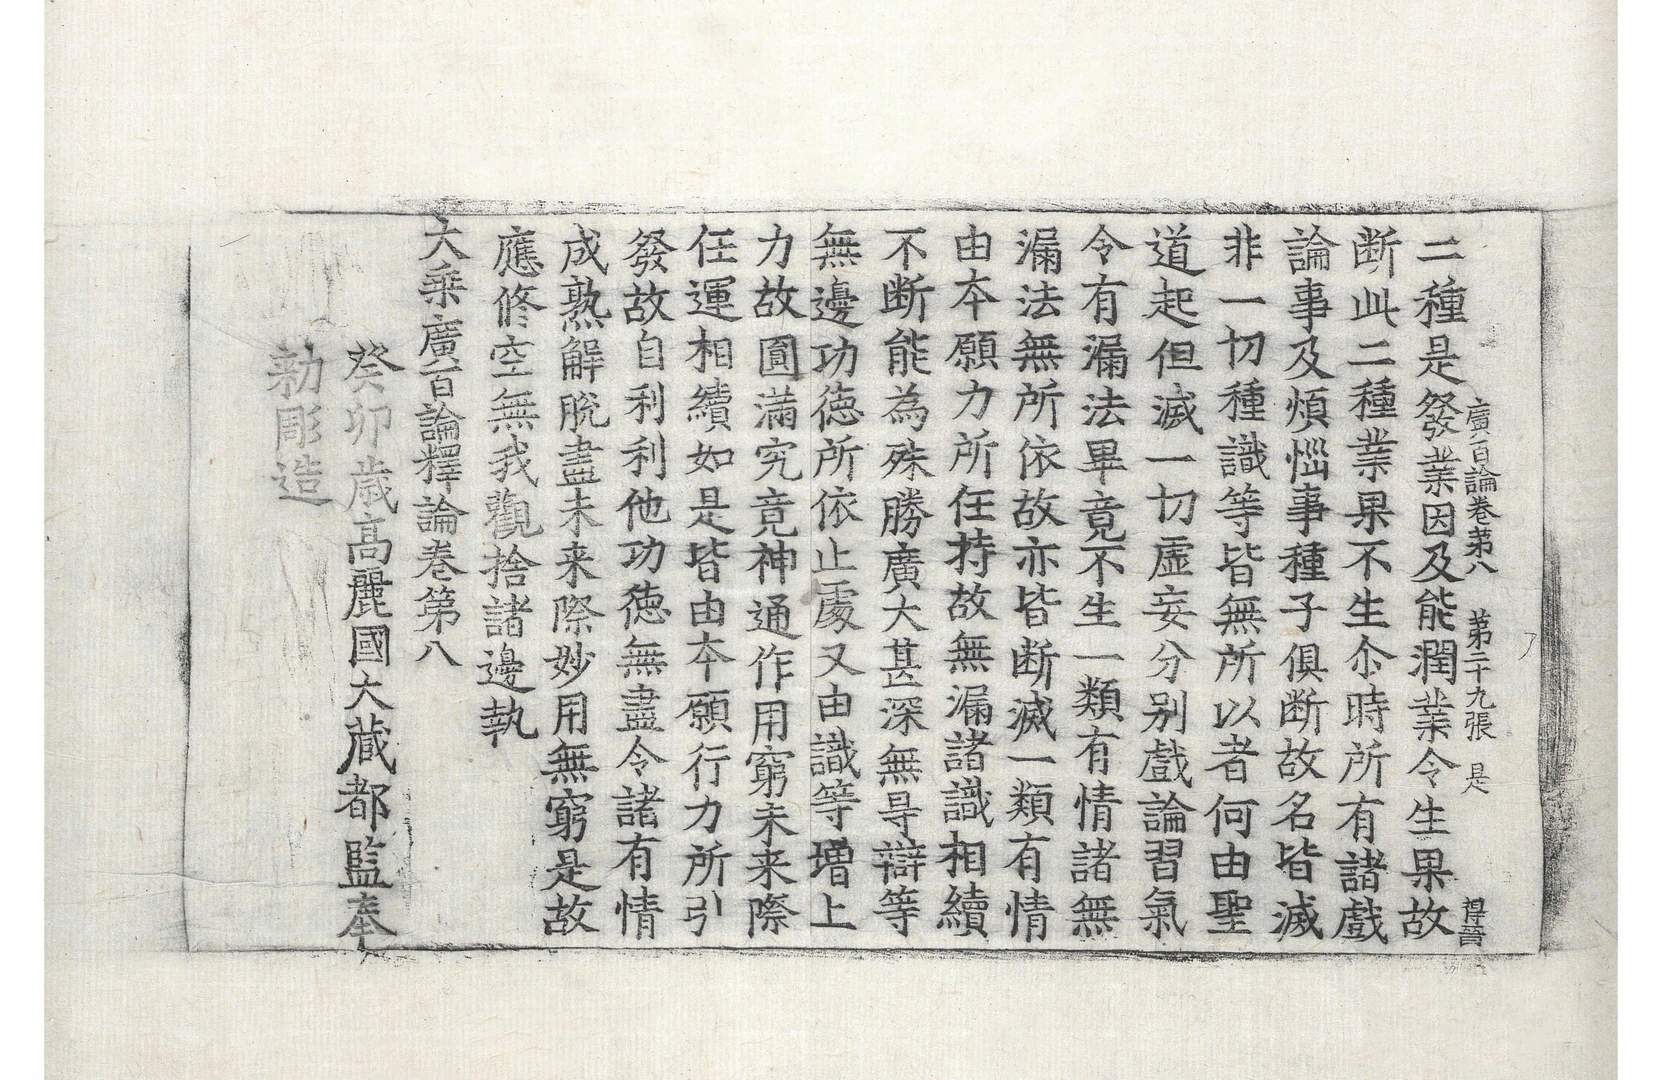 廣百論卷苐八　苐二十九張　是
二種是發業因及能潤業令生果故
断此二種業果不生尒時所有諸戲
論事及煩惱事種子俱断故名皆滅
非一切種識等皆無所以者何由聖
道起但滅一切虛妄分别戲論習氣
令有漏法畢竟不生一類有情諸無
漏法無所依故亦皆断滅一類有情
由本願力所任持故無漏諸識相續
不断能為殊勝廣大甚深無导辯等
無邊功徳所依止處又由識等增上
力故圓滿究竟神通作用窮未来際
任運相續如是皆由本願行力所引
發故自利利他功徳無盡令諸有情
成熟解脫盡未来際妙用無窮是故
應修空無我觀捨諸邊執
大乘廣百論釋論卷第八
癸卯歳高麗國大藏都監奉
勅彫造